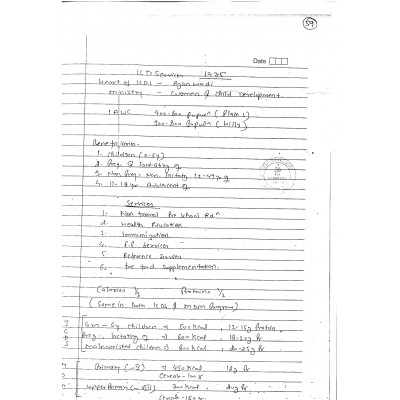 59
Date
ICD Services 1975
Heart of ICDS - Anganwadi
Ministry - Women & Child Development.
1 AWC 400-800 populn (Plains)
300-800 populn (Hilly)
Beneficiaries -
1. Children (0-6y)
2. Preg. & lactating ♀
3. Non Preg. Non lactatg 15-49 yr ♀
4. 11-18 yr Adolescent ♀
Services
1. Non formal Pre School Edn
2. Health Education
3. Immunization
4. F.P. Services
5. Reference Services
6. food Supplementation.
Calories 1/3 Proteins 1/2
(Same in both ICDS & MDM Program)
6m - 6y children → 500 Kcal, 12-15g Protein
Preg., lactating ♀ → 600 Kcal, 18-20g Pr
malnourished children → 800 Kcal, 20-25g Pr
Primary (-V) → 450 Kcal 12g Pr
Upper Primary (-VIII) 700 Kcal 20g Pr